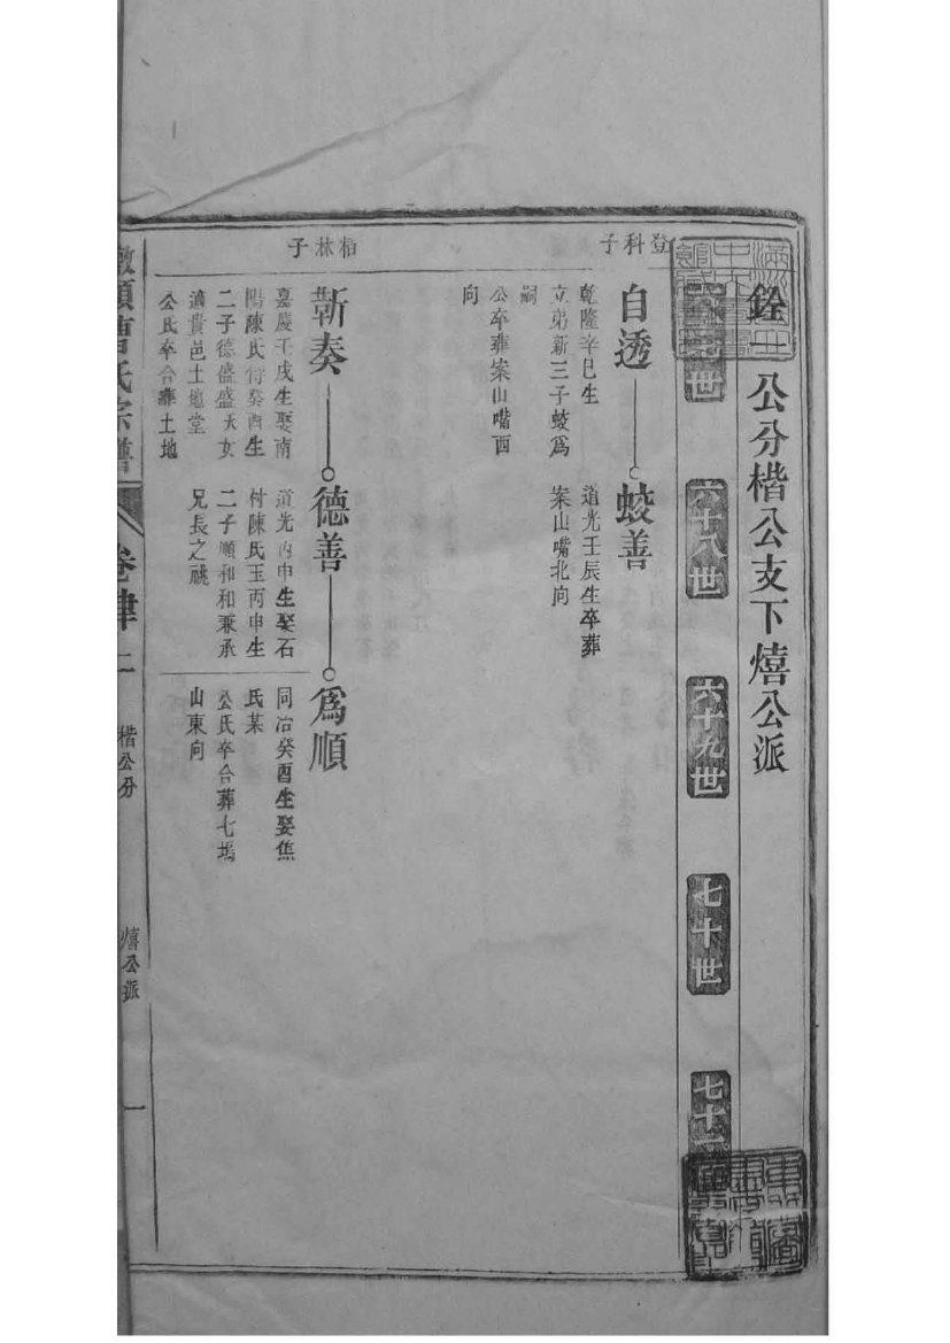 銓公分楷公支下熺公派
六十八世
六十九世
七十世
七十一
登科子
自透
乾隆辛巳生
立弟新三子蛟爲
嗣
公卒葬案山嘴西
向
蛟善
道光壬辰生卒葬
案山嘴北向
栢林子
新奏
嘉慶壬戌生娶南
陽陳氏行癸酉生
二子德盛盛夭女
適貴邑土地堂
公氏卒合葬土地
德善
道光丙申生娶石
村陳氏玉丙申生
二子順和和兼承
兄長之祧
爲順
同治癸酉生娶焦
氏某
公氏卒合葬七塢
山東向
氏宗譜
卷津二
楷公分
熺公派
一